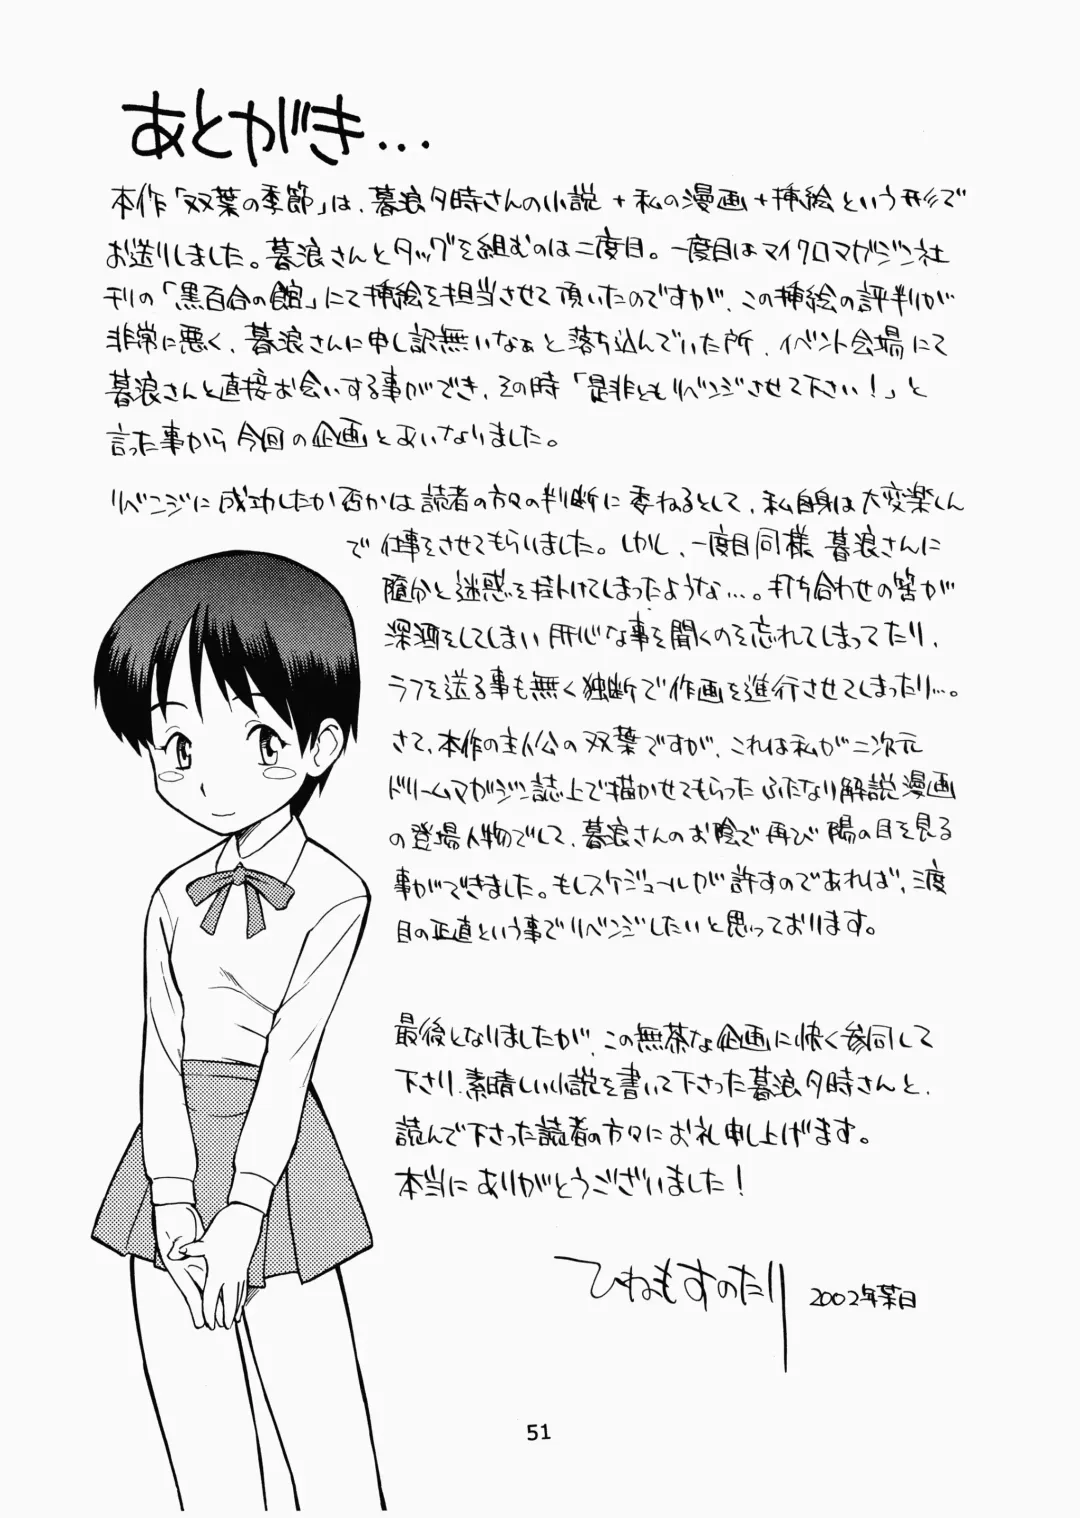 あとがき...
本作「双葉の季節」は、暮浪夕時さんの小説+私の漫画+挿絵という形で
お送りしました。暮浪さんとタッグを組むのは二度目。一度目はマイクロマガジン社
刊の「黒百合の館」にて挿絵を担当させて頂いたのですが、この挿絵の評判が
非常に悪く、暮浪さんに申し訳無いなぁと落ち込んでいた所、イベント会場にて
暮浪さんと直接お会いする事ができ、その時「是非ともリベンジさせて下さい!」と
言った事から今回の企画とあいなりました。
リベンジに成功したか否かは読者の方々の判断に委ねるとして、私自身は大変楽しん
で仕事をさせてもらいました。しかし、一度目同様暮浪さんに
随分と迷惑を掛けてしまったような...。打ち合わせの筈が
深酒をしてしまい肝心な事を聞くのを忘れてしまってたり、
ラフを送る事も無く独断で作画を進行させてしまったり...。
さて、本作の主人公の双葉ですが、これは私が二次元
ドリームマガジン誌上で描かせてもらったふたなり解説漫画
の登場人物でして、暮浪さんのお陰で再び陽の目を見る
事ができました。もしスケジュールが許すのであれば、三度
目の正直という事でリベンジしたいと思っております。
最後となりましたが、この無茶な企画に快く参同して
下さり、素晴しい小説を書いて下さった暮浪夕時さんと、
読んで下さった読者の方々にお礼申し上げます。
本当にありがとうございました!
ひねもすのたり 2002年葉日
51